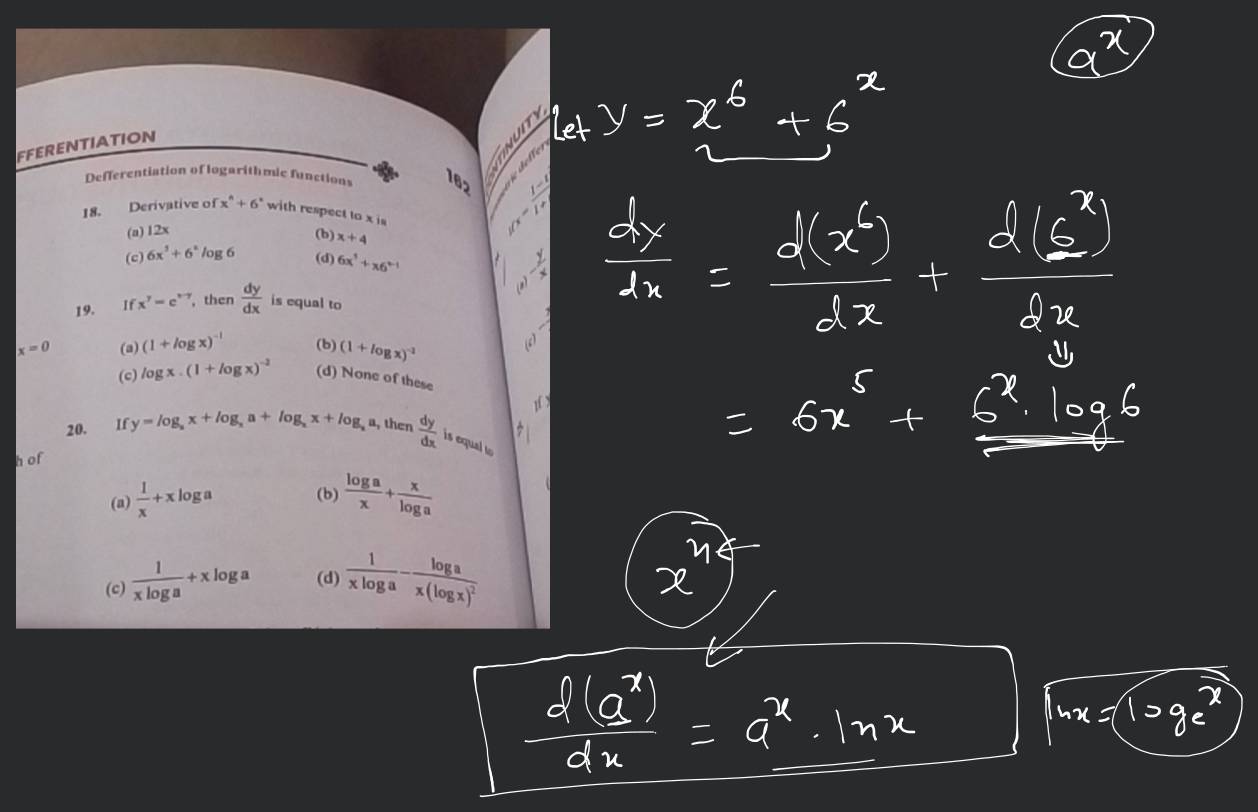 FFERENTIATION
162
Defferentiation of logarithmic functions
18. Derivative of x⁶ + 6ˣ with respect to x is
(a) 12x (b) x + 4
(c) 6x⁵ + 6ˣ log 6 (d) 6x⁵ + x6ˣ⁻¹
19. If xʸ = eˣ⁻ʸ, then dy/dx is equal to
x = 0
(a) (1 + log x)⁻¹ (b) (1 + log x)⁻²
(c) log x . (1 + log x)⁻² (d) None of these
20. If y = logₐ x + logₓ a + logₓ x + logₐ a, then dy/dx is equal to
h of
(a) 1/x + x log a (b) log a/x + x/log a
(c) 1/(x log a) + x log a (d) 1/(x log a) − log a/(x(log x)²)
CONTINUITY,
aˣ
Let y = x⁶ + 6ˣ
dy/dx = d(x⁶)/dx + d(6ˣ)/dx
= 6x⁵ + 6ˣ . log 6
xⁿ
d(aˣ)/dx = aˣ . ln x
ln x = logₑ x